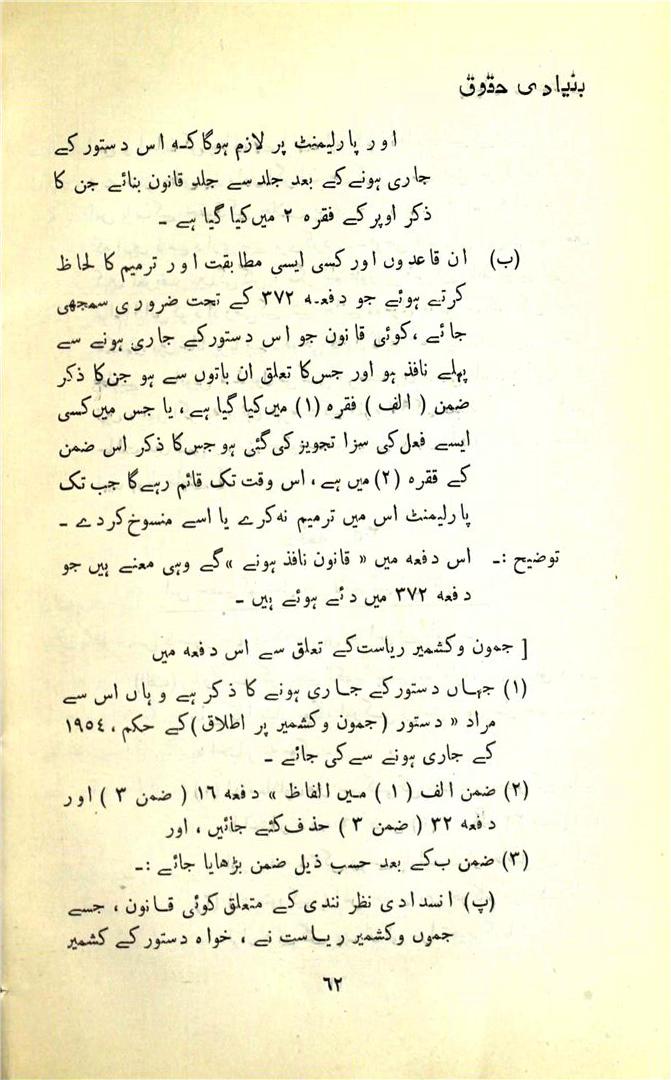 بنیادی حقوق
اور پارلیمنٹ پر لازم ہوگا کہ اس دستور کے
جاری ہونے کے بعد جلد سے جلد قانون بنائے جن کا
ذکر اوپر کے فقرہ ۲ میں کیا گیا ہے ۔
(ب) ان قاعدوں اور کسی ایسی مطابقت اور ترمیم کا لحاظ
کرتے ہوئے جو دفعہ ۳۷۲ کے تحت ضروری سمجھی
جائے ، کوئی قانون جو اس دستور کے جاری ہونے سے
پہلے نافذ ہو اور جس کا تعلق ان باتوں سے ہو جن کا ذکر
ضمن ( الف ) فقرہ (۱) میں کیا گیا ہے ، یا جس میں کسی
ایسے فعل کی سزا تجویز کی گئی ہو جس کا ذکر اس ضمن
کے فقرہ (۲) میں ہے ، اس وقت تک قائم رہے گا جب تک
پارلیمنٹ اس میں ترمیم نہ کرے یا اسے منسوخ کر دے ۔
توضیح :۔ اس دفعہ میں « قانون نافذ ہونے » گے وہی معنے ہیں جو
دفعہ ۳۷۲ میں دئے ہوئے ہیں ۔
[ جمون و کشمیر ریاست کے تعلق سے اس دفعہ میں
(۱) جہاں دستور کے جاری ہونے کا ذکر ہے وہاں اس سے
مراد « دستور (جمون و کشمیر پر اطلاق) کے حکم ، ۱۹۵٤
کے جاری ہونے سے کی جائے ۔
(۲) ضمن الف ( ۱ ) میں الفاظ » دفعہ ۱٦ ( ضمن ۳ ) اور
دفعہ ۳۲ ( ضمن ۳ ) حذف کئے جائیں ، اور
(۳) ضمن ب کے بعد حسب ذیل ضمن بڑھایا جائے :۔
(پ) انسدادی نظر نندی کے متعلق کوئی قانون ، جسے
جموں و کشمیر ریاست نے ، خواہ دستور کے کشمیر
٦۲